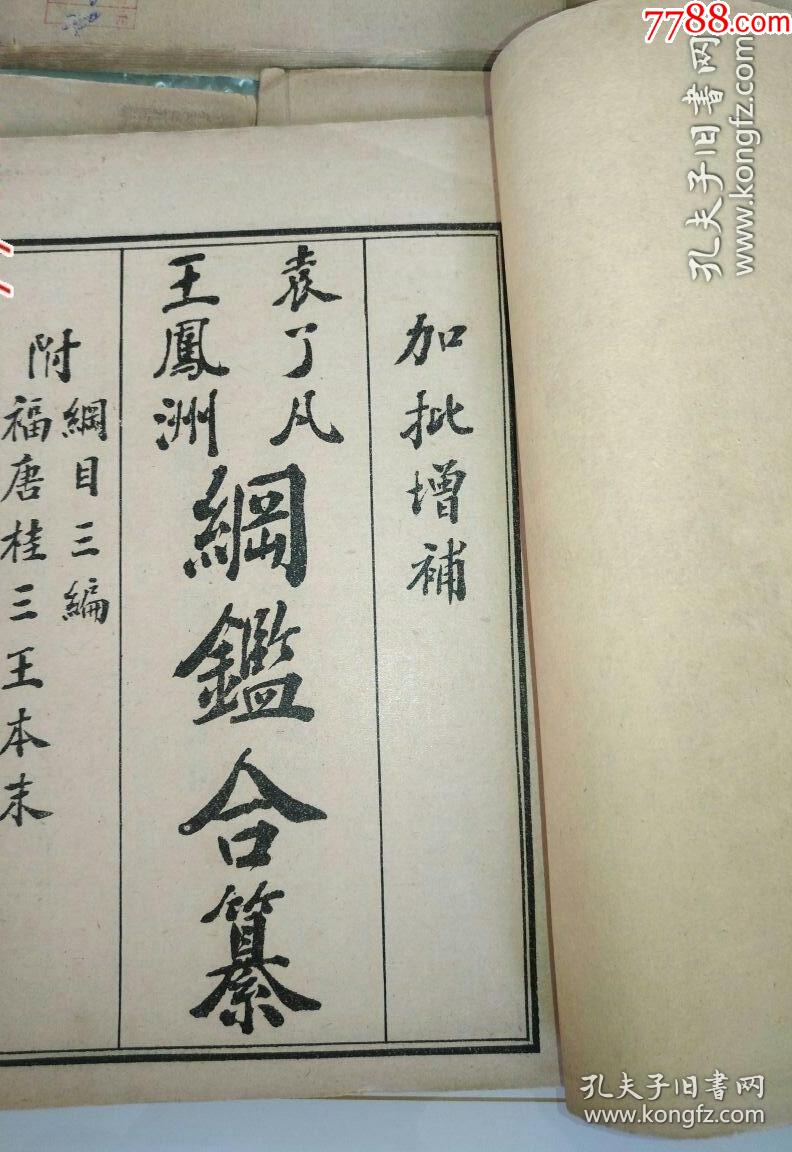 加批增補
袁了凡
王鳳洲
綱鑑合纂
附
綱目三編
福唐桂三王本末
7788.com
孔夫子旧书网
www.kongfz.com
孔夫子旧书网
www.kongfz.com